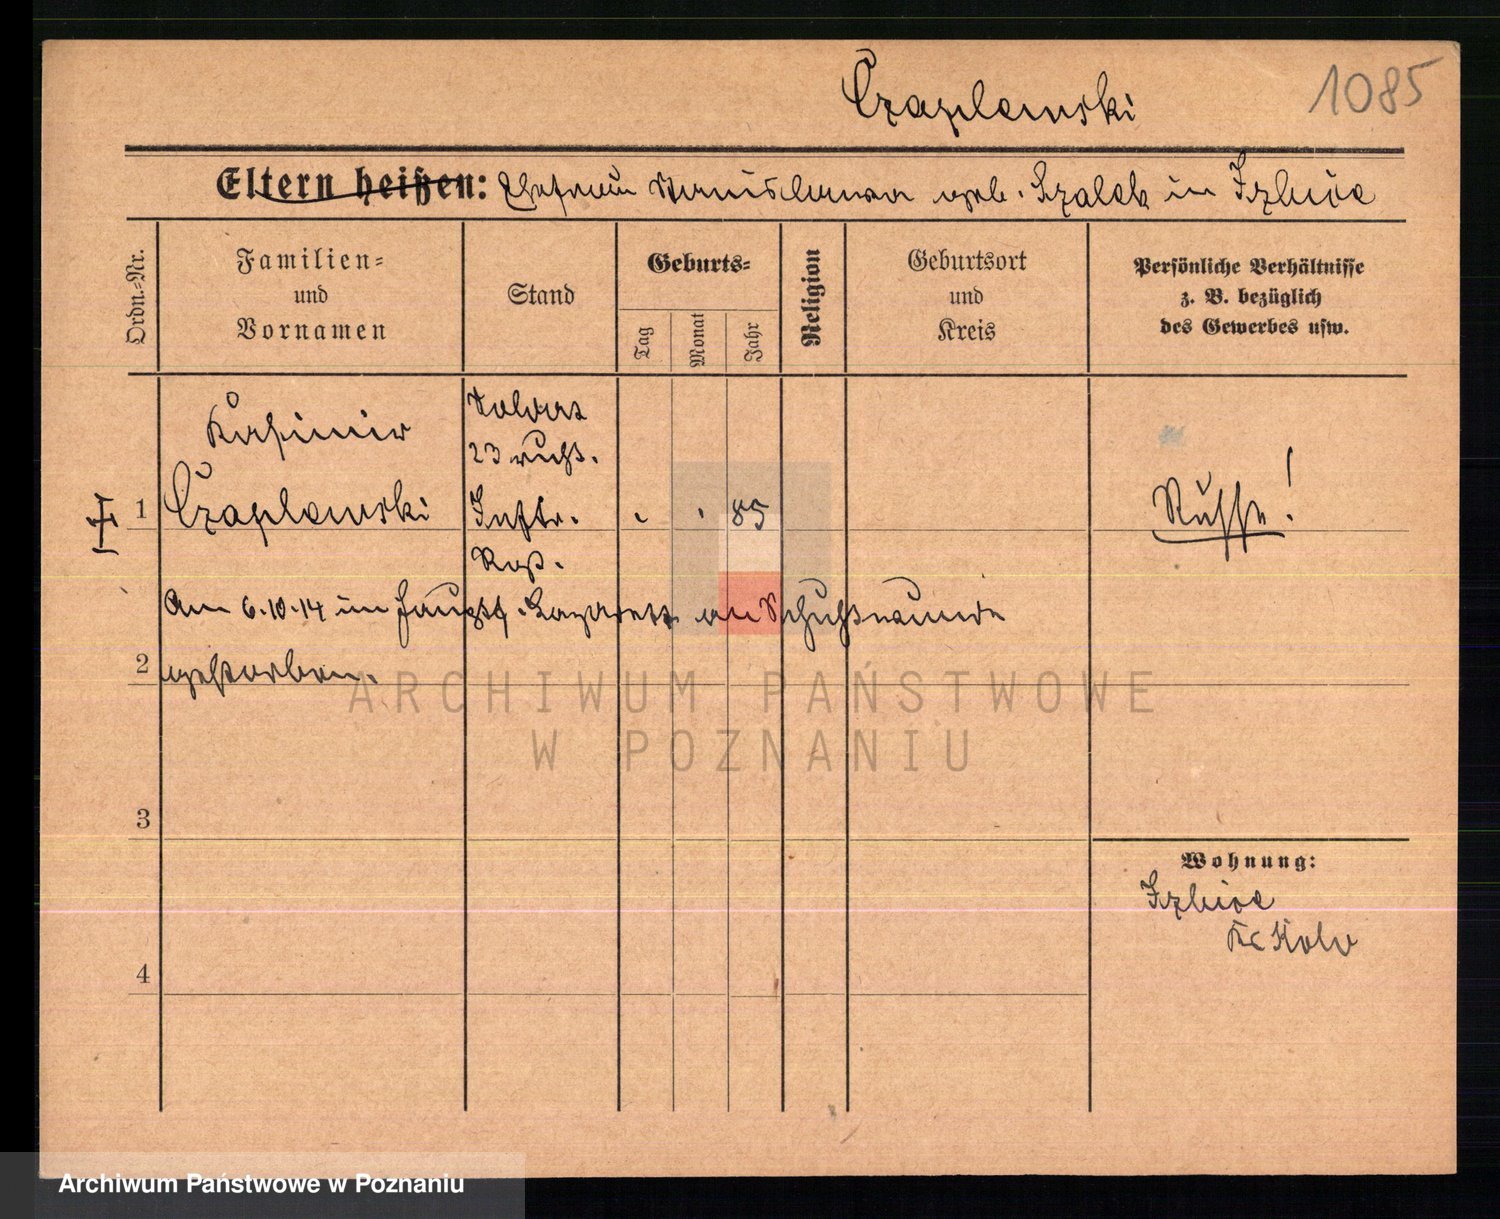 Czaplewski
1085
Eltern heißen: Ehefrau Stanislawa geb. Szalek in Izbica
Ordn.-Nr.
Familien-
und
Vornamen
Stand
Geburts-
Tag
Monat
Jahr
Religion
Geburtsort
und
Kreis
Persönliche Verhältnisse
z. B. bezüglich
des Gewerbes usw.
Kasimir
Soldat
23 russ.
1 Czaplewski Inftr. 85 Russe!
Am 6.10.14 im Haupt-Lazarett an Schußwunde
2 gestorben.
ARCHIWUM PAŃSTWOWE
W POZNANIU
3
Wohnung:
Izbica
Kr Kolo
4
Archiwum Państwowe w Poznaniu